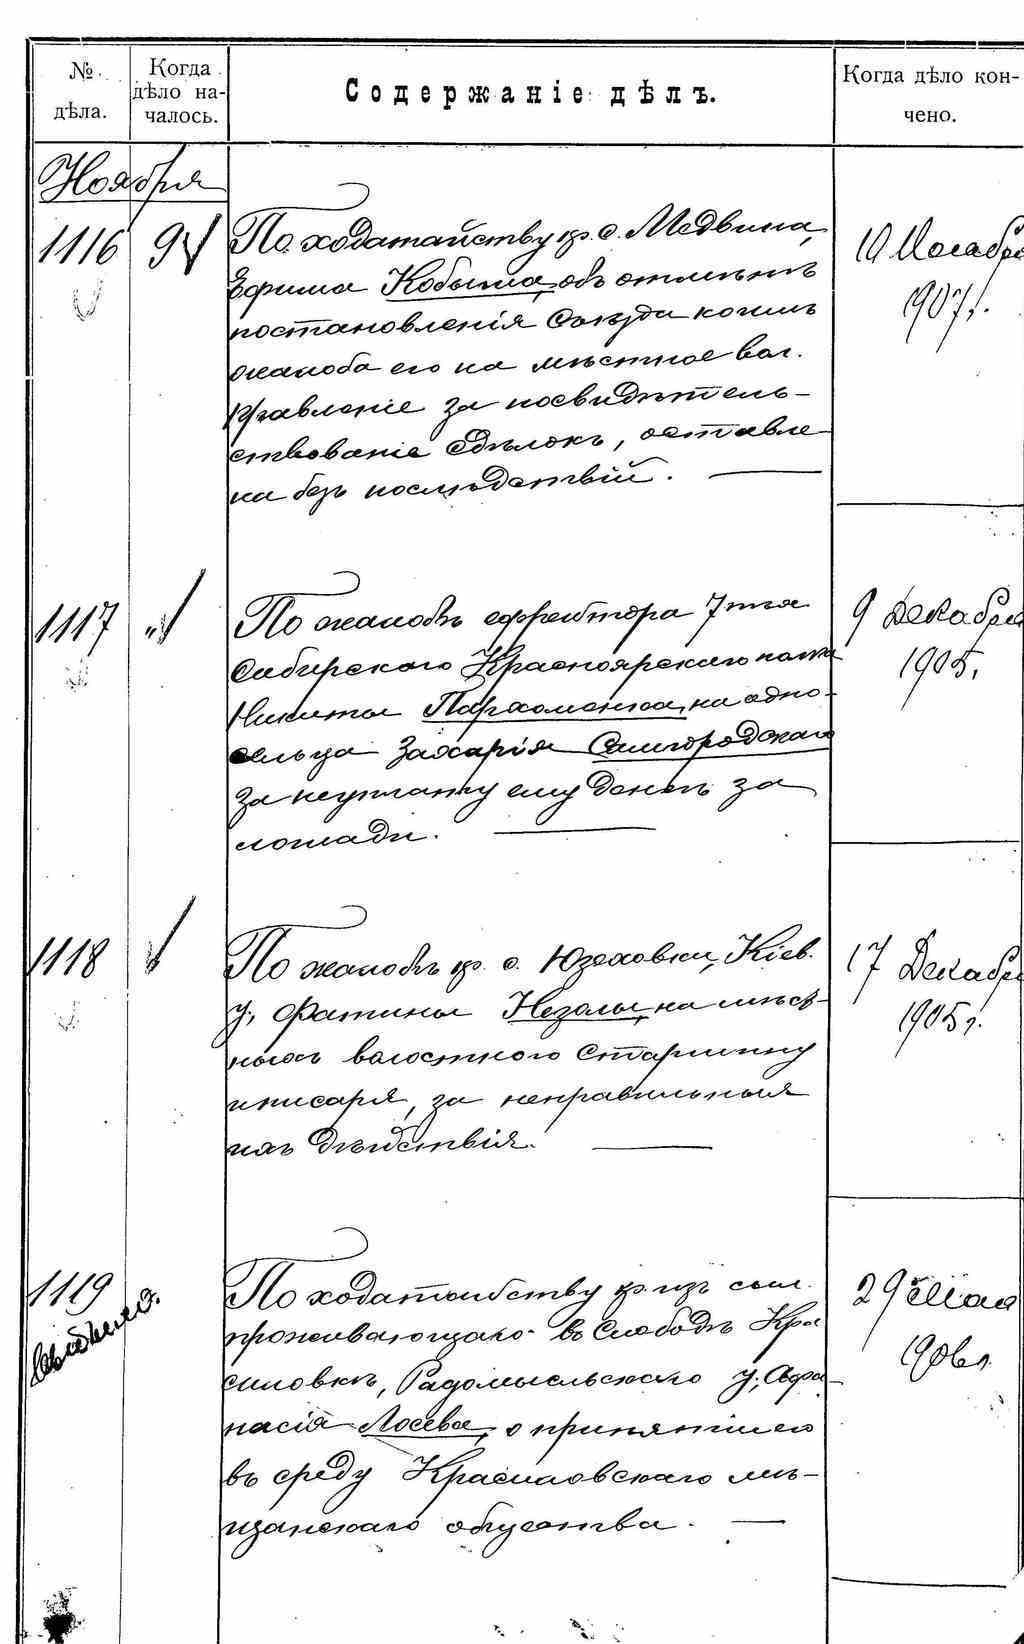 № дѣла.
Когда дѣло началось.
Содержаніе дѣлъ.
Когда дѣло кончено.
Ноября
1116
9
По ходатайству кр. с. Медвина,
Ефима Кобыша, объ отмѣнѣ
постановленія Съѣзда коимъ
жалоба его на мѣстное вол.
Правленіе за посвидѣтель-
ствованіе сдѣлокъ, оставле-
на безъ послѣдствій.
10 Ноября
1907 г.
1117
"
По жалобѣ ефрейтора 7 пѣх
Сибирскаго Красноярскаго полка
Никиты Пархоменка, на одно-
сельца Захарія Самгородскаго
за неуплату ему денегъ за
лошади.
9 Декабря
1905.
1118
По жалобѣ кр. с. Юзефовки, Кіев.
у., Фатины Незолы, на мѣст-
ныхъ волостного Старшину
и писаря, за неправильныя
ихъ дѣйствія.
17 Декабр
1905 г.
1119
По ходатайству кр. изъ сыл.
проживающаго въ слободѣ Кра
силовкѣ, Радомысльскаго у., Афа-
насія Лосева, о принятіи его
въ среду Красиловскаго мѣ-
щанскаго общества.
29 Мая
1906 г.